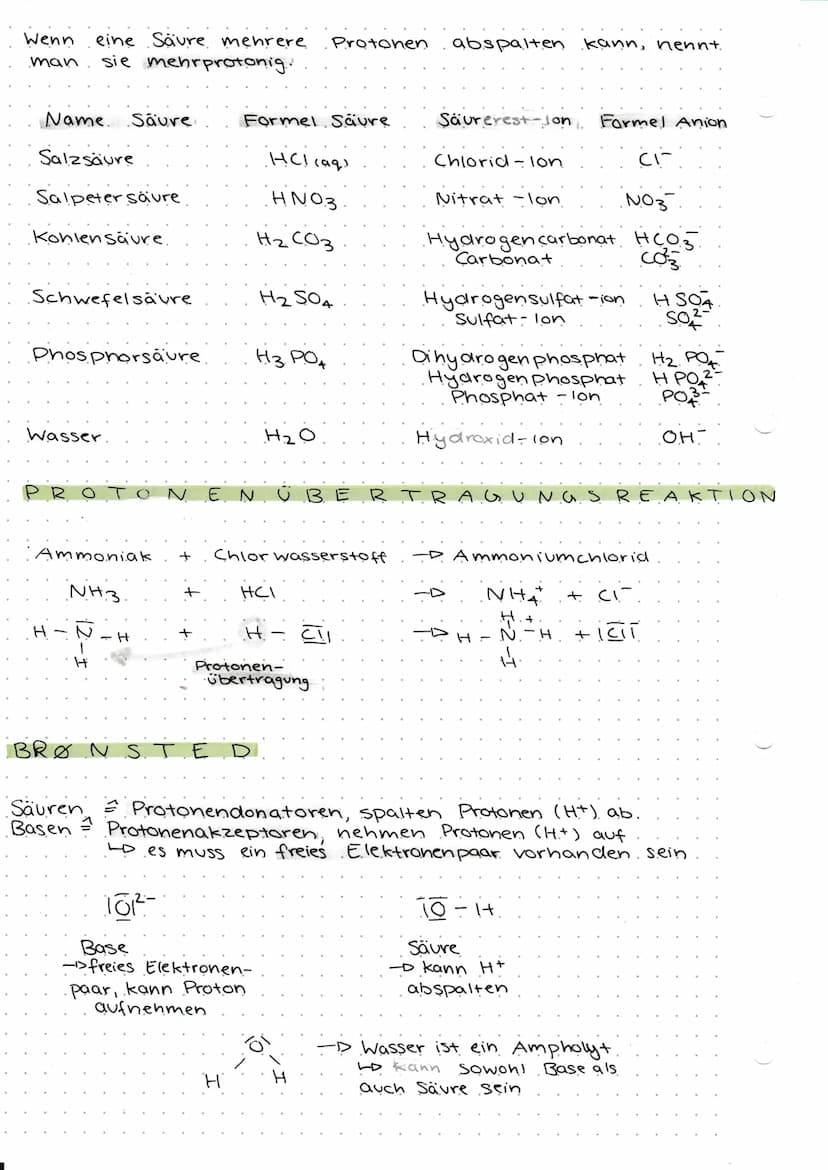 Wenn eine Säure mehrere Protonen abspalten kann, nennt
man sie mehrprotonig.
Name Säure Formel Säure Säurerest-Ion Formel Anion
Salzsäure HCl (aq) Chlorid-Ion Cl⁻
Salpetersäure HNO₃ Nitrat-Ion NO₃⁻
Kohlensäure H₂CO₃ Hydrogencarbonat HCO₃⁻
Carbonat CO₃²⁻
Schwefelsäure H₂SO₄ Hydrogensulfat-ion HSO₄⁻
Sulfat-Ion SO₄²⁻
Phosphorsäure H₃PO₄ Dihydrogenphosphat H₂PO₄⁻
Hydrogenphosphat HPO₄²⁻
Phosphat-Ion PO₄³⁻
Wasser H₂O Hydroxid-Ion OH⁻
PROTONENÜBERTRAGUNGSREAKTION
Ammoniak + Chlorwasserstoff → Ammoniumchlorid
NH₃ + HCl → NH₄⁺ + Cl⁻
H
H – N – H + H – Cl| → H – N⁺ – H + |Cl|⁻
H H
Protonen-
übertragung
BRØNSTED
Säuren ≙ Protonendonatoren, spalten Protonen (H+) ab.
Basen ≙ Protonenakzeptoren, nehmen Protonen (H+) auf
↳ es muss ein freies Elektronenpaar vorhanden sein
|O|²⁻ |O – H
Base Säure
→ freies Elektronen- → kann H⁺
paar, kann Proton abspalten
aufnehmen
O → Wasser ist ein Ampholyt
H H ↳ kann sowohl Base als
auch Säure sein